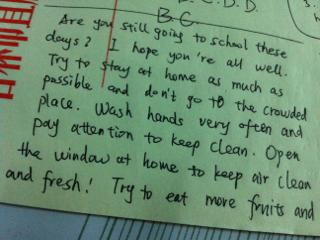 B.C.
Are you still going to school these
days? I hope you're all well.
Try to stay at home as much as
possible and don't go to the crowded
place. Wash hands very often and
pay attention to keep clean. Open
the window at home to keep air clean
and fresh! Try to eat more fruits and